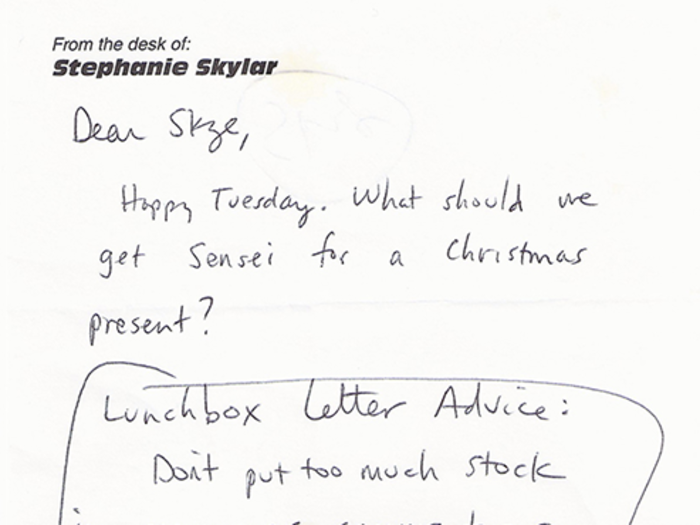 From the desk of:
Stephanie Skylar
Dear Skye,
Happy Tuesday. What should we
get Sensei for a Christmas
present?
Lunchbox Letter Advice:
Don't put too much stock